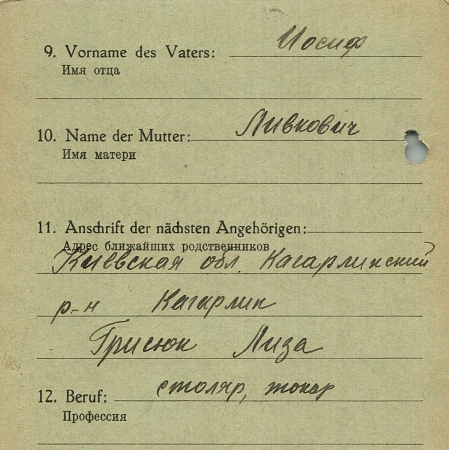 9. Vorname des Vaters: Иосиф
Имя отца
10. Name der Mutter: Ливкович
Имя матери
11. Anschrift der nächsten Angehörigen:
Адрес ближайших родственников
Киевская обл. Кагарликский
р-н Кагарлик
Грисюк Лиза
12. Beruf: столяр, токар
Профессия